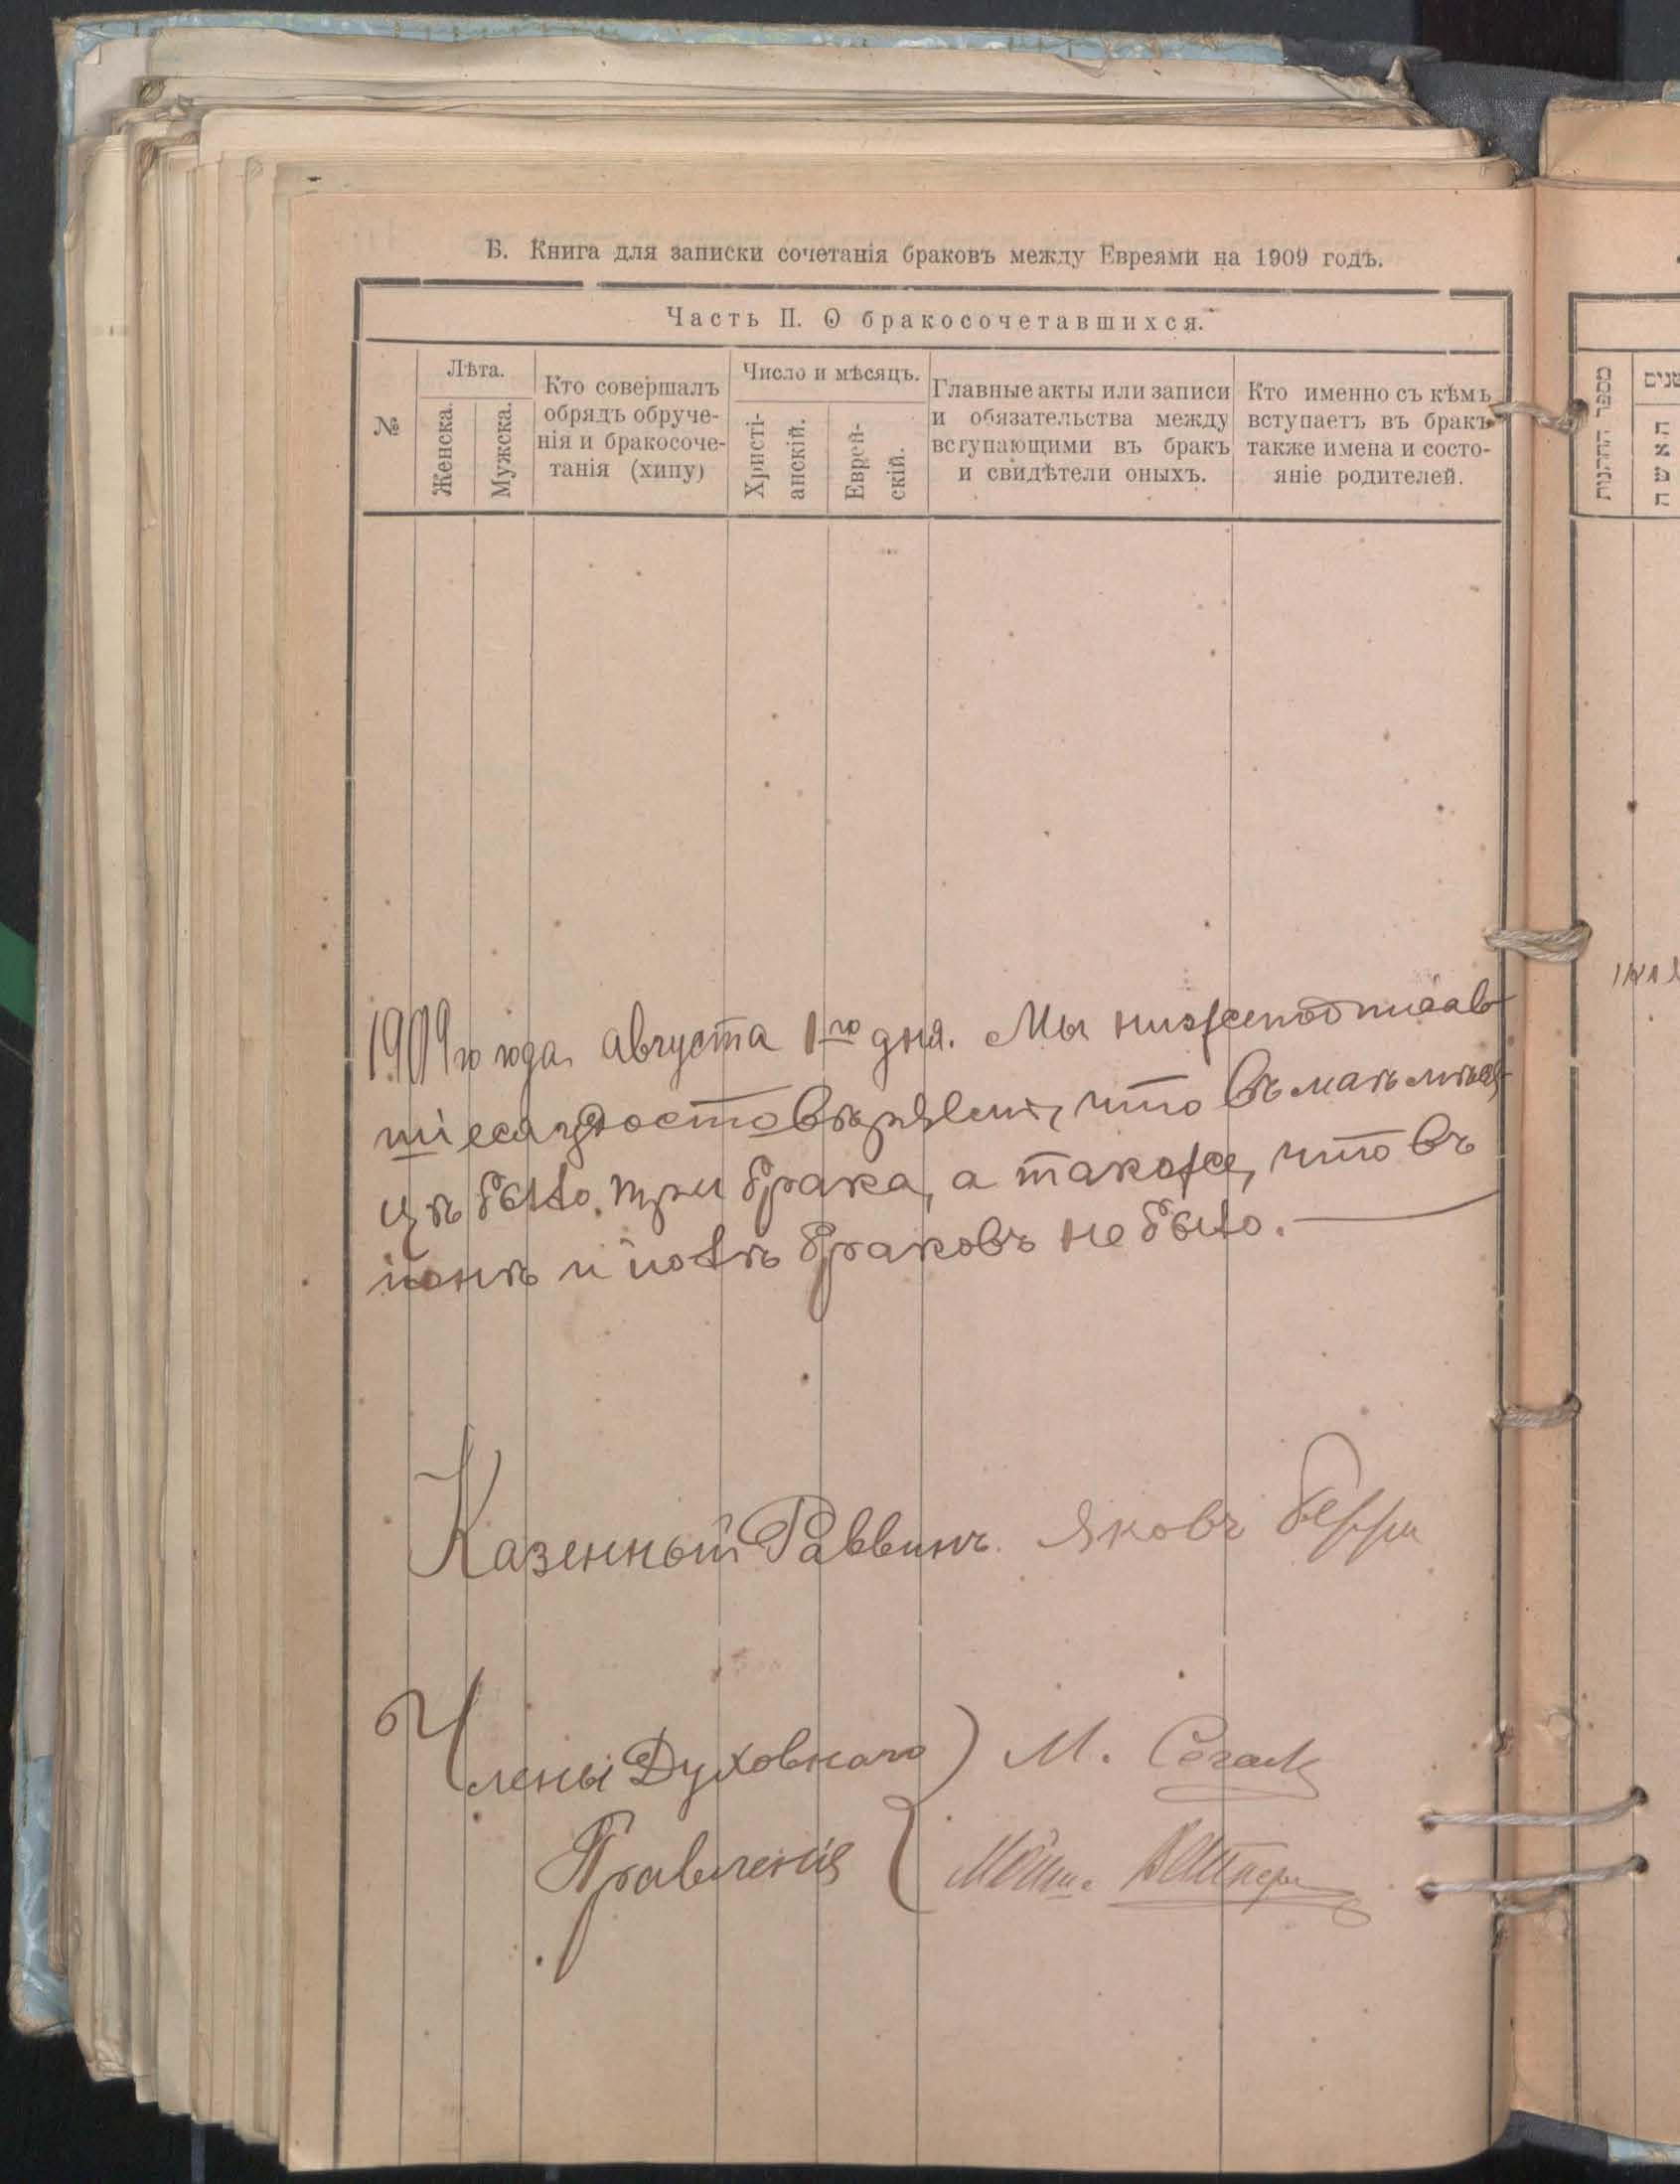 Б. Книга для записки сочетанія браковъ между Евреями на 1909 годъ.
Часть II. О бракосочетавшихся.
№
Лѣта.
Женска.
Мужска.
Кто совершалъ
обрядъ обруче-
нія и бракосоче-
танія (хипу)
Число и мѣсяцъ.
Христі-
анскій.
Еврей-
скій.
Главные акты или записи
и обязательства между
вступающими въ бракъ
и свидѣтели оныхъ.
Кто именно съ кѣмъ
вступаетъ въ бракъ
также имена и состо-
яніе родителей.
1909 го года августа 1го дня. Мы нижеподписав-
шіеся удостовѣряемъ, что въ маѣ мѣся-
цѣ было три брака, а также, что въ
іюнѣ и іюлѣ браковъ не было.
Казенный Раввинъ Яковъ
Члены Духовнаго ) М. Сегаль
Правленія {
מספר החתונות
שנים
האשה